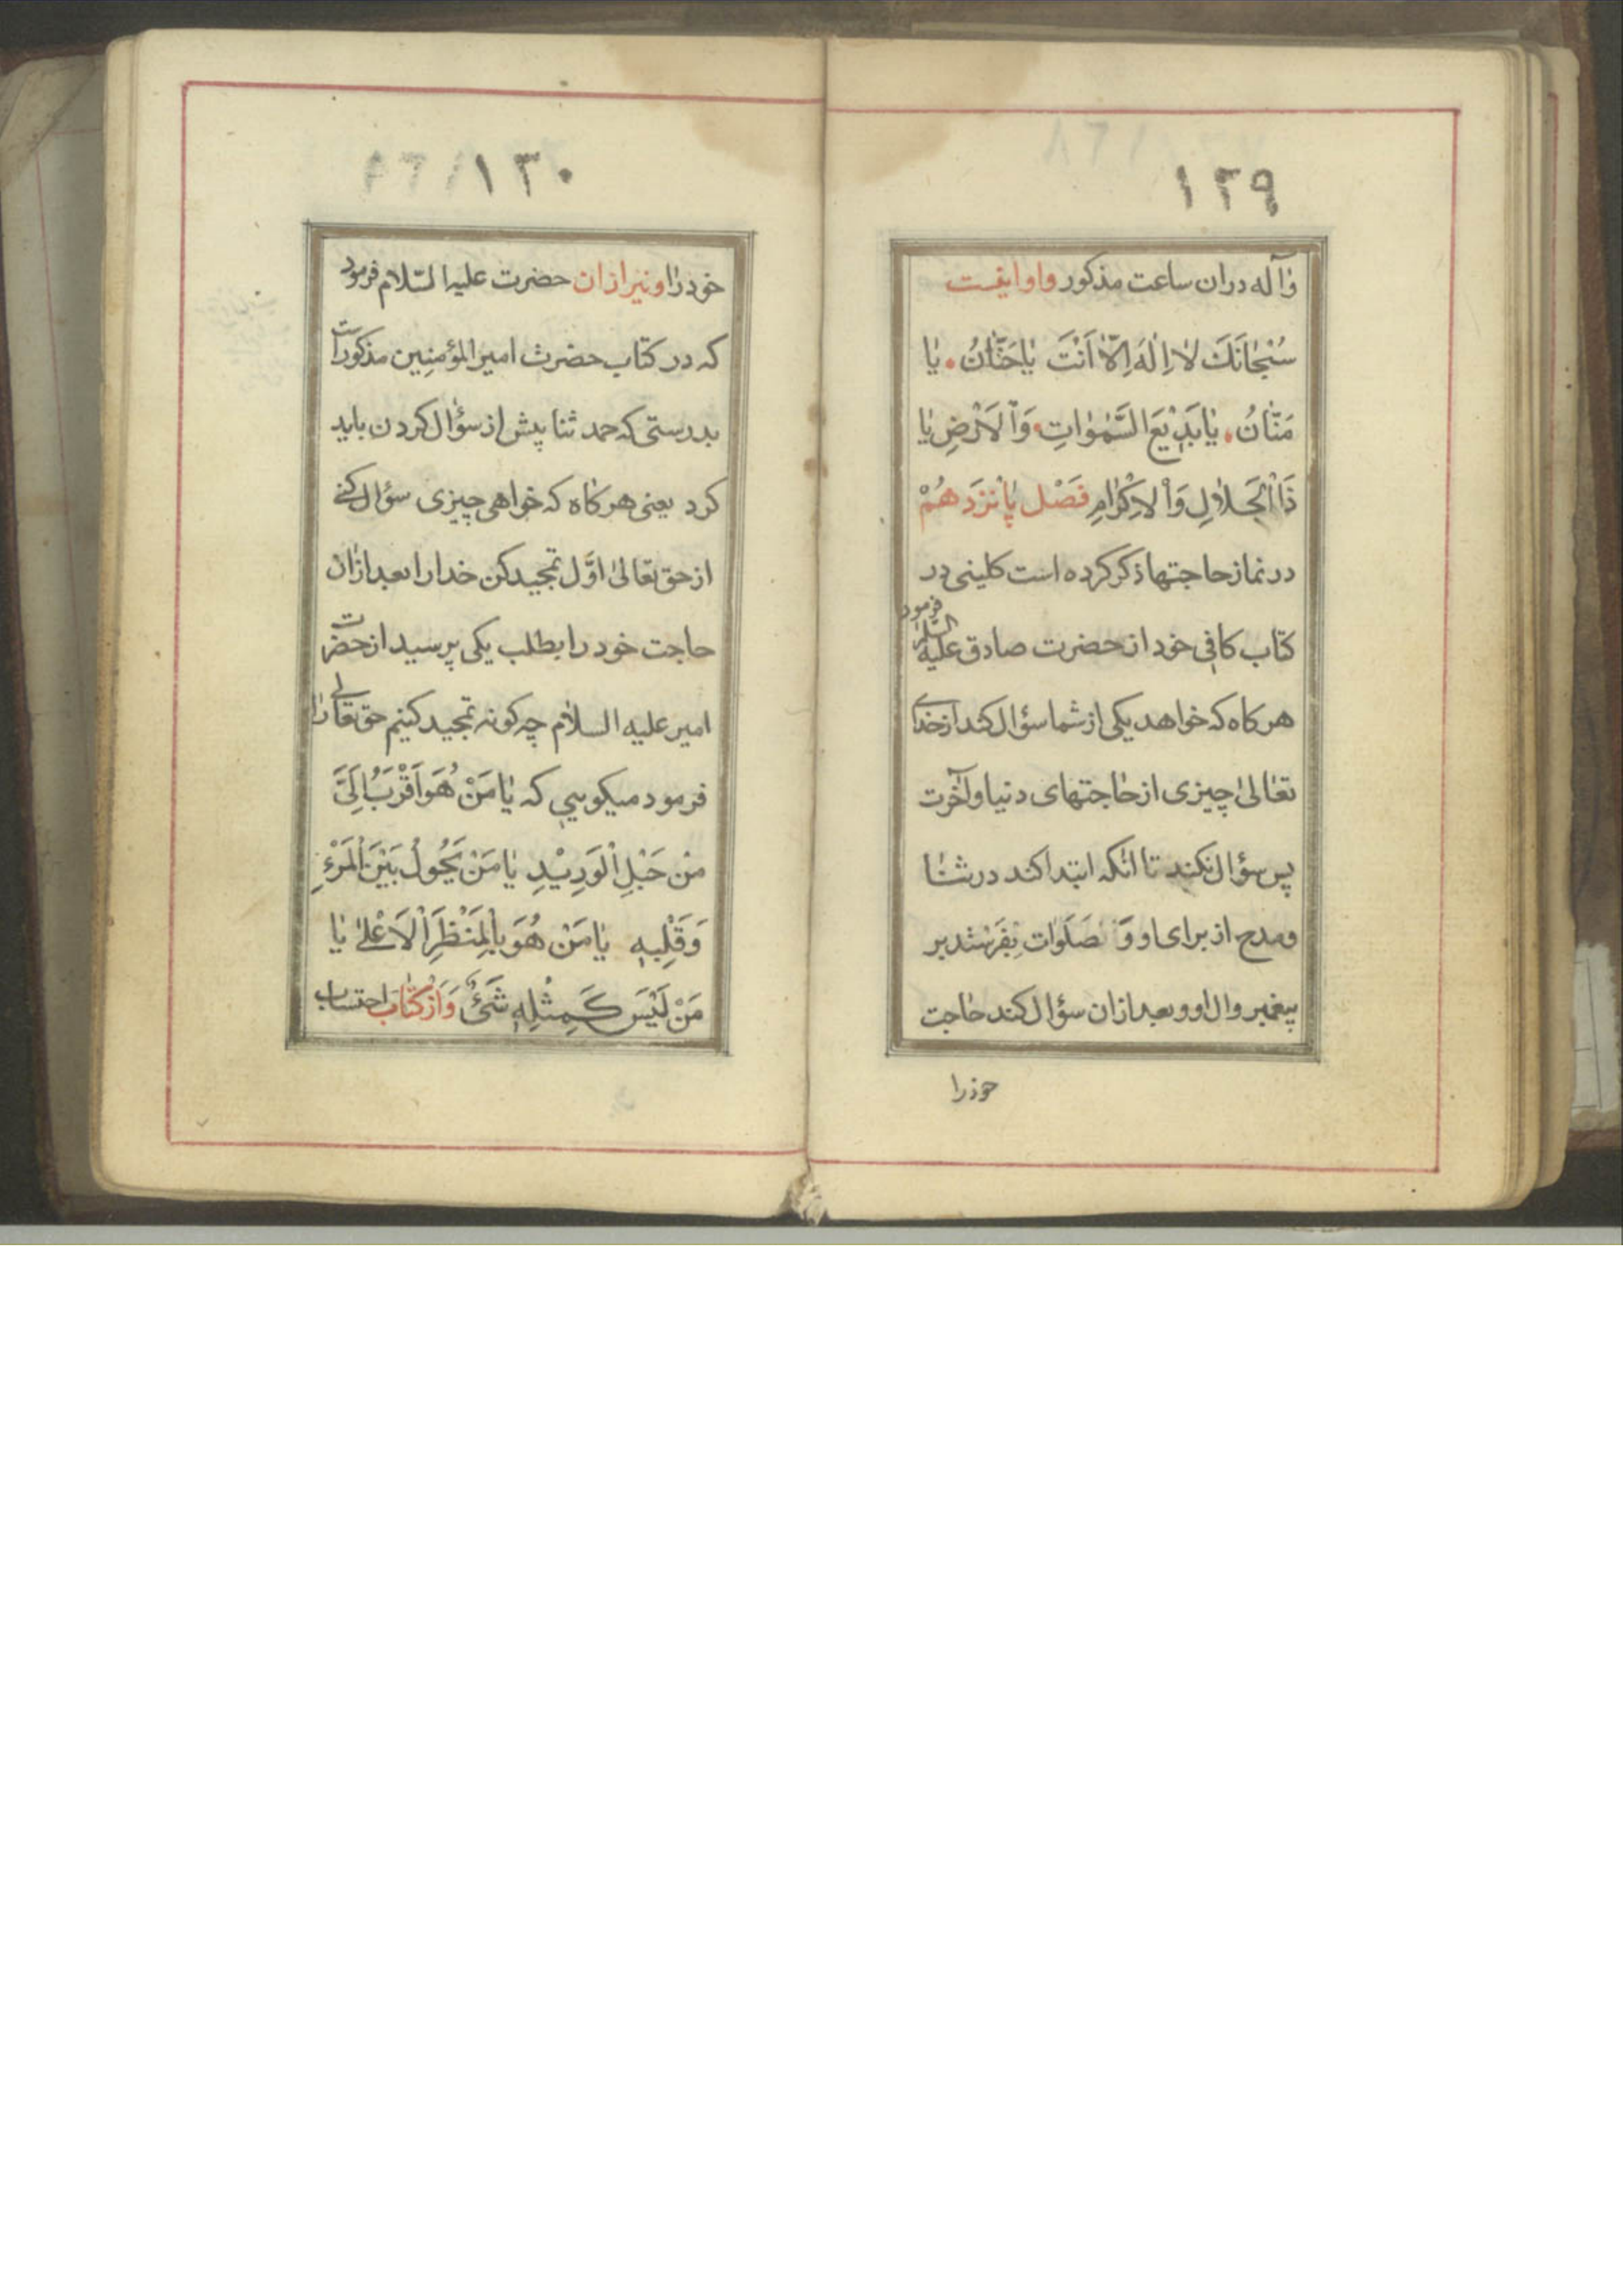 ١٢٩
وآله دران ساعت مذكور واو اينست
سُبْحٰانَكَ لٰا اِلٰهَ اِلّٰا اَنْتَ يٰا حَنّٰانُ. يٰا
مَنّٰانُ. يٰا بَدِيْعَ السَّمٰوٰاتِ وَاْلاَرْضِ يٰا
ذَا اْلجَلاٰلِ وَاْلاِكْرٰامِ فَصْل پٰانْزَدَهُمْ
در نماز حاجتها ذكر كرده است كلينى در
كتاب كافى خود از حضرت صادق عليه السلم فرمود
هركاه كه خواهد يكى از شما سؤال كند از خداى
تعٰالىٰ چيزى از حٰاجتهاى دنيا وآخرت
پس سؤال نكند تا انكه ابتدا كند در ثنٰا
ومدح از براى او وَ صَلَوٰات بِفَرستد بر
پيغمبر وال او وبعد ازان سؤال كند حٰاجت
خودرا
١٣٠
خود رٰا ونيز ازان حضرت عليه السّلام فرمود
كه در كتاب حضرت امير المؤمنِين مذكور است
بدرستى كه حمد ثنا پيش از سؤال كردن بايد
كرد يعنى هركاه كه خواهى چيزى سؤال كنے
از حق تعالىٰ اوَّل تمجيد كن خدا را بعد ازٰان
حاجت خود را بطلب يكى پرسيد از حضرت
امير عليه السلٰام چه كونه تمجيد كنيم حق تعالى رٰا
فرمود ميكويي كه يٰا مَنْ هُوَ اَقْرَبُ اِلَىَّ
مِنْ حَبْلِ اْلوَرِيْدِ يٰا مَنْ يَحُولُ بَيْنَ اْلمَرْءِ
وَقَلْبِهِ يٰا مَنْ هُوَ بِاْلمَنْظَرِ اْلاَعْلىٰ يٰا
مَنْ لَيْسَ كَمِثْلِهِ شَىْءٌ وَاَزْ كتٰاب احتساب